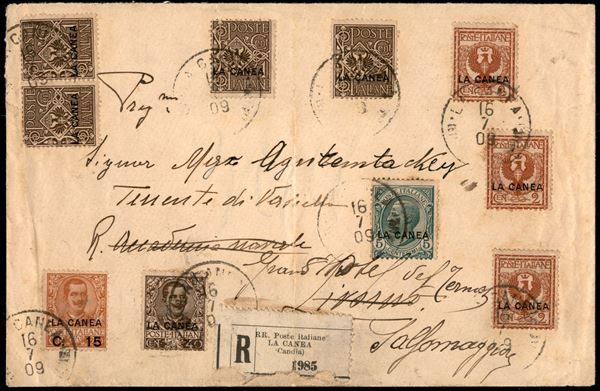 LA CANEA
LA CANEA
LA CANEA
LA CANEA
POSTE ITALIANE
LA CANEA
CENT. 2
16
7
09
Signor
Tenente di Vascello
R. Accademia navale
Grand Hotel des Termes
Livorno
Salsomaggiore
POSTE ITALIANE
LA CANEA
CENT. 2
POSTE ITALIANE
5 5
LA CANEA
16
7
09
POSTE ITALIANE
LA CANEA
CENT. 2
LA CANEA
C. 15
16
7
09
LA CANEA
POSTE ITALIANE
CENT. 40
16
7
R
RR. Poste Italiane
LA CANEA
(Candia)
1985